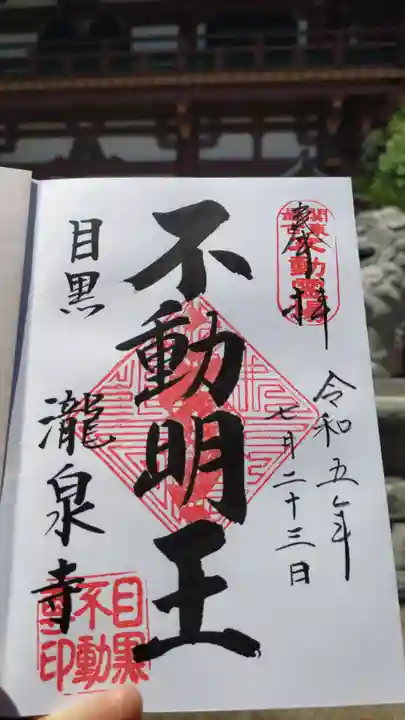 奉拝
関東最古不動霊場
令和五年
七月二十三日
不動明王
目黒 瀧泉寺
目黒不動尊印